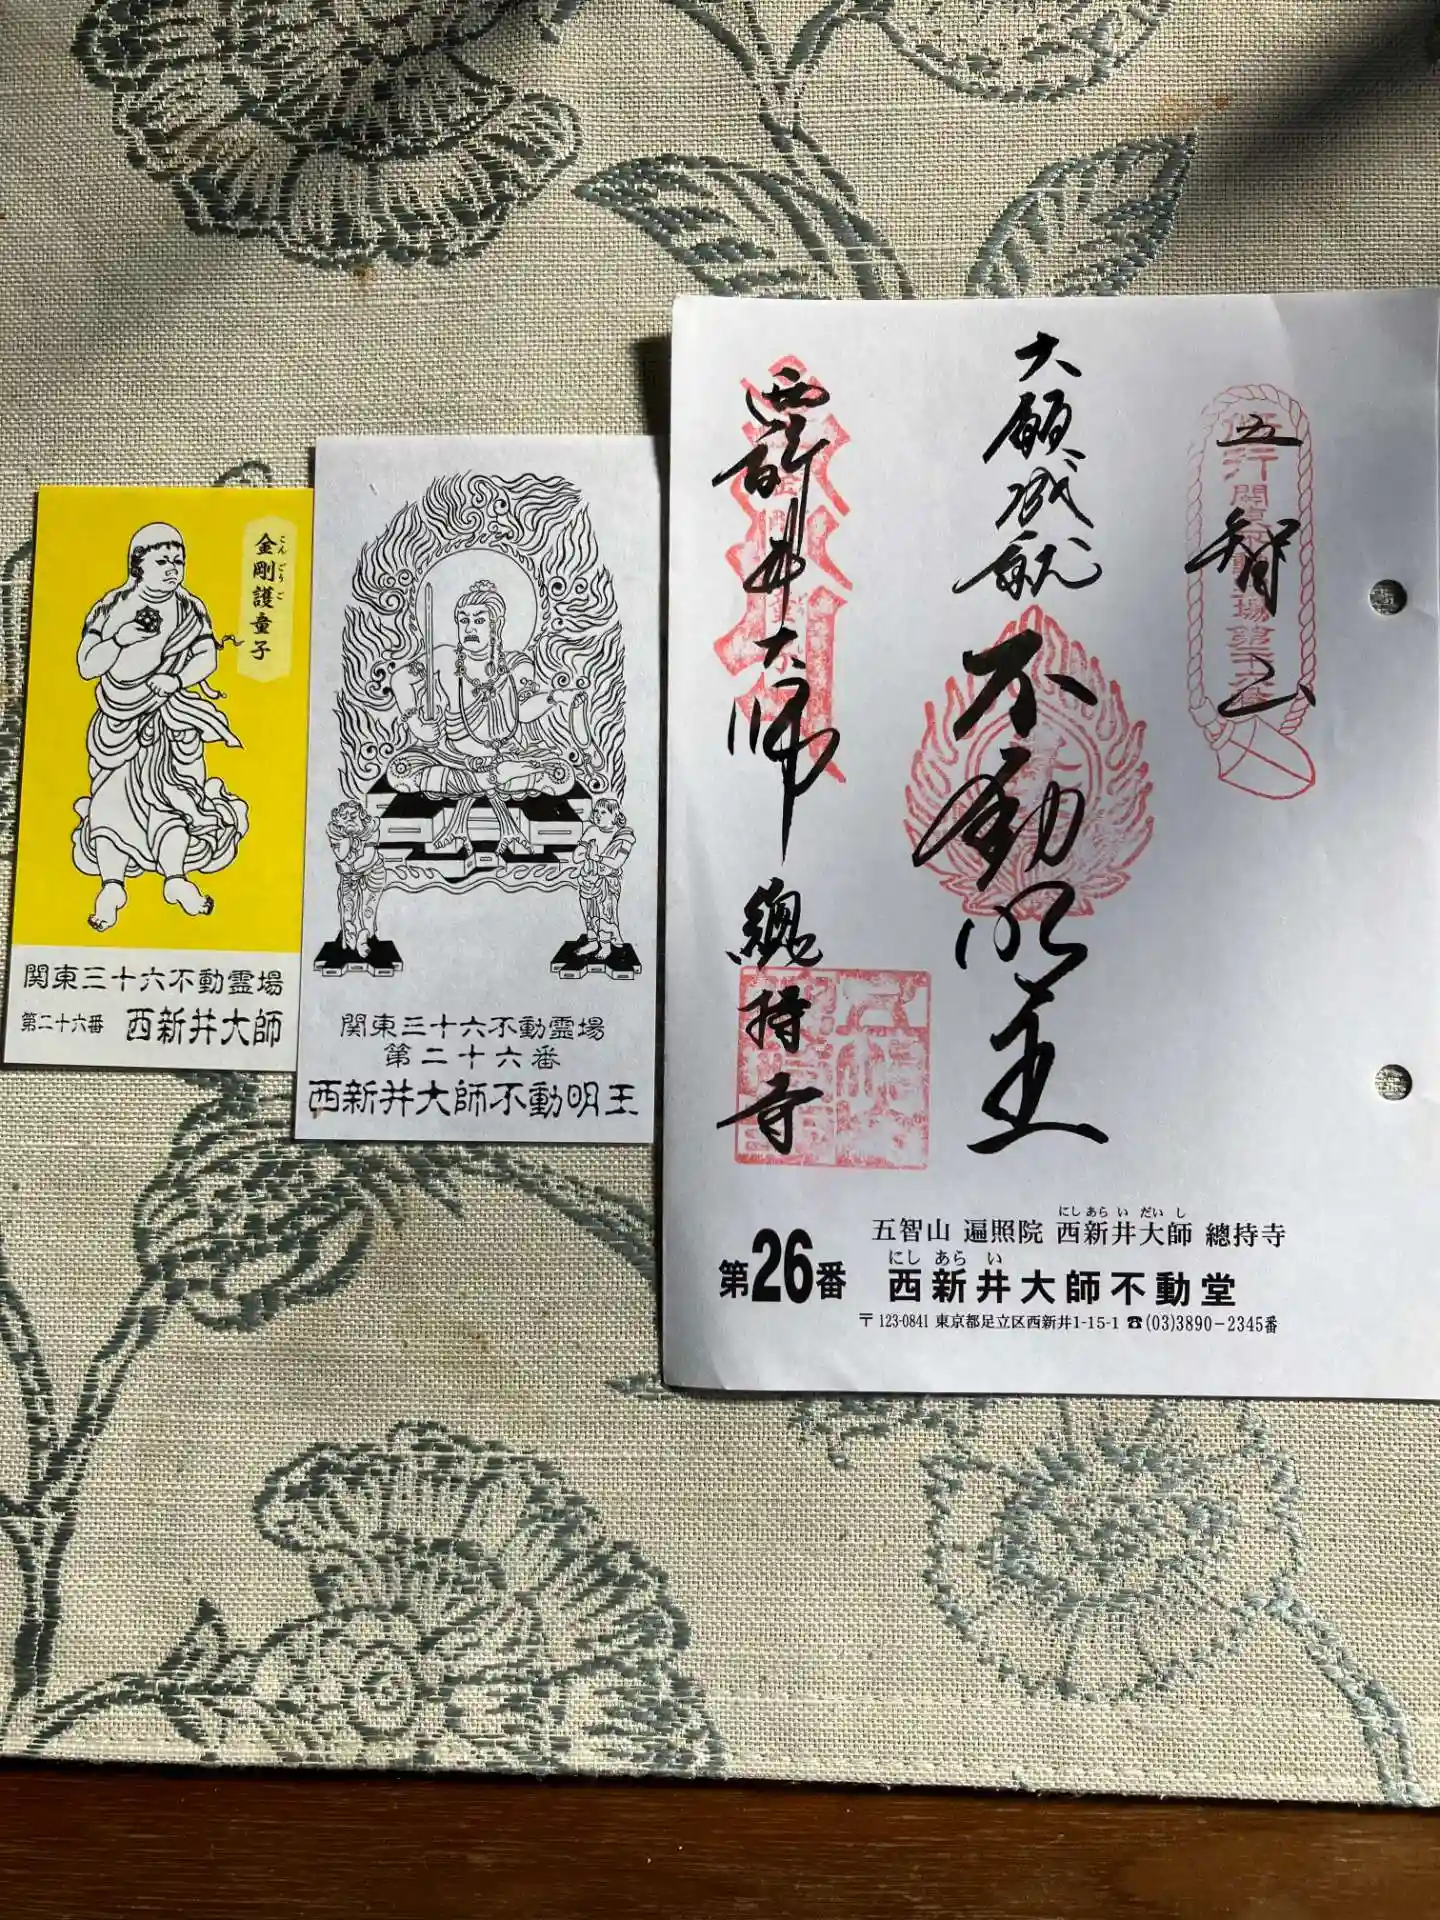 金剛護童子
こんごうご
関東三十六不動霊場
第二十六番 西新井大師
関東三十六不動霊場
第二十六番
西新井大師不動明王
五智山
大願成就
不動明王
西新井大師
總持寺
第26番
にしあらいだいし
五智山 遍照院 西新井大師 總持寺
にしあらい
西新井大師不動堂
〒123-0841 東京都足立区西新井1-15-1 ☎(03)3890-2345番